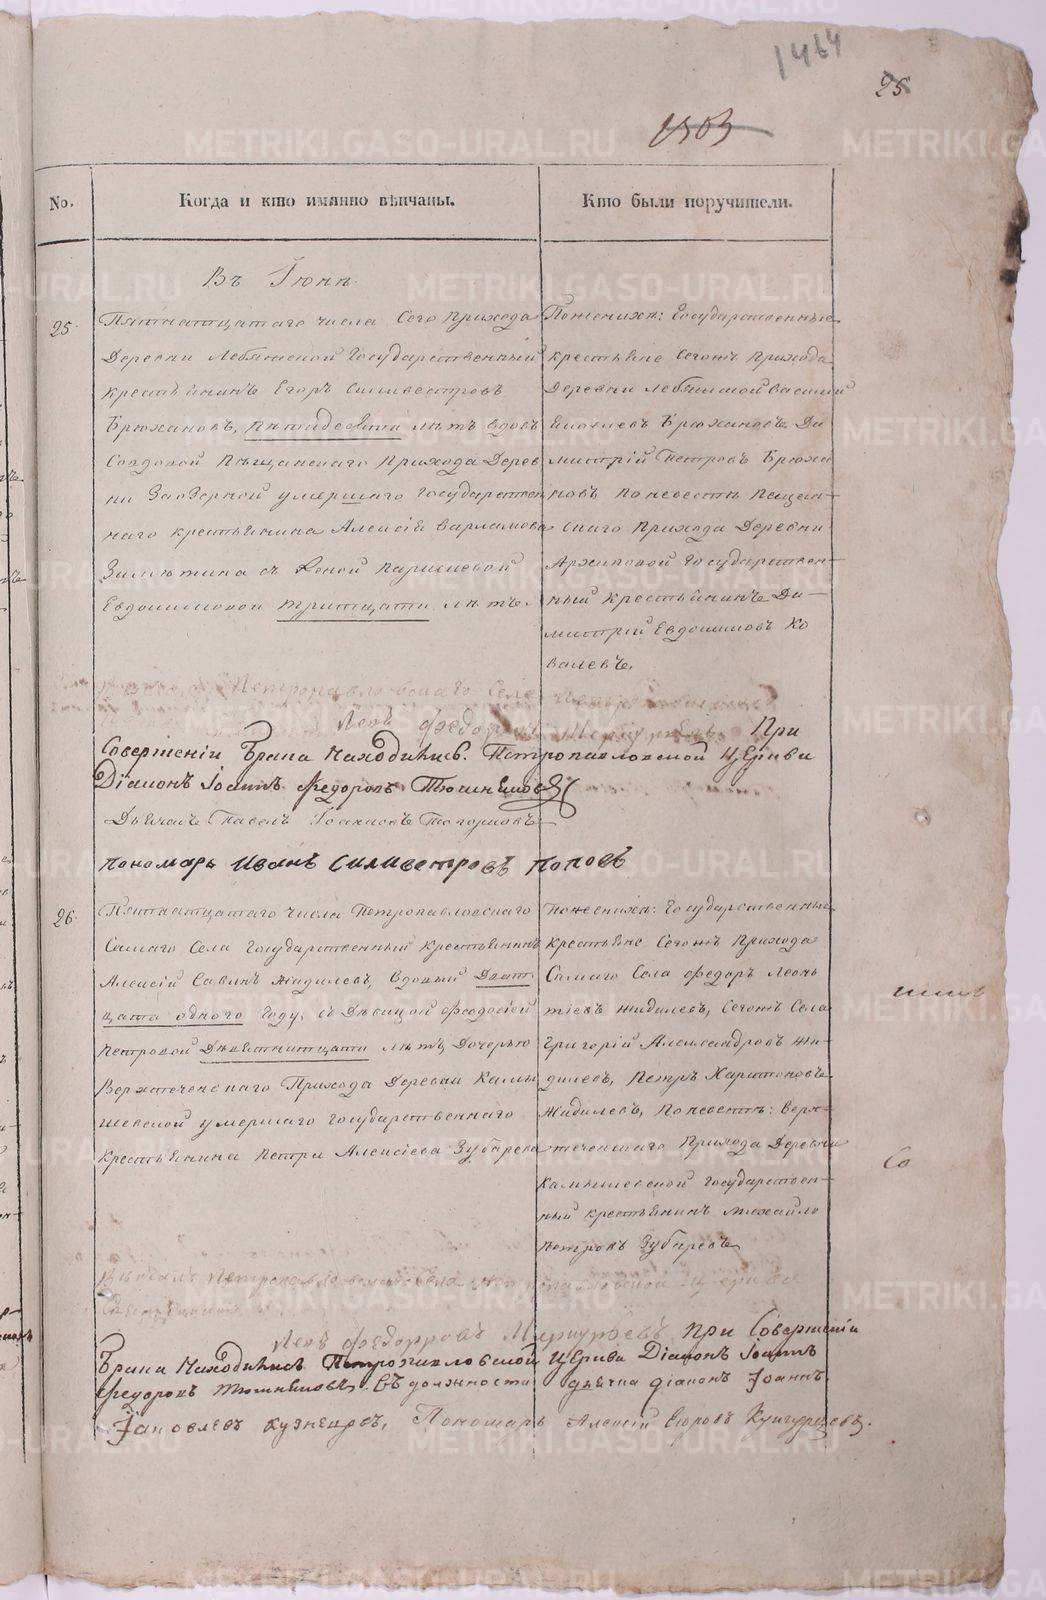 1464
25
1503
No.
Когда и кто имянно вѣнчаны.
Кто были поручители.
Въ Іюнѣ.
25.
Пятнатцатаго числа Сего прихода
Деревни Лебяжской Государственный
крестьянинъ Егоръ Силивестровъ
Брюхановъ, пятидесяти лѣтъ вдовъ
Совдовой Пещанскаго прихода Дерев
ни Заозерной умершаго Государствен
наго крестьянина Алексія Варламова
съ
Евдокимовой тритцати лѣтъ.
Пожениха: Государственные
крестьяне Сегожъ прихода
Деревни Лебяжской Василій
Яковлевъ Брюхановъ Ди
митрій Петровъ Брюха
новъ по невестѣ Пещан-
скаго прихода Деревни
Архиповой Государствен-
ный крестьянинъ Ди-
митрій Евдокимовъ Ко
валевъ.
Петропавловскаго Села
Левъ Федоровъ Меркурьевъ При
Совершеніи Брака Находились. Петропавловской Церкви
Діаконъ Іоаннъ Федоровъ Тюшняковъ
Дьячекъ Павелъ Іоанновъ
пономарь Иванъ Силивестровъ Поповъ
26.
Пятнатцатаго числа Петропавловскаго
Самаго Села Государственный крестьянинъ
Алексій Савинъ Жидилевъ, вдовый Дват
цати одного Году, съ Дѣвицой Феодосіей
Петровой Девятнатцати лѣтъ, Дочерью
Верхтеченскаго Прихода Деревни Камы
шевской умершаго Государственнаго
крестьянина Петра Алексіева Зубарева
Пожениха: Государственные
крестьяне Сегожъ Прихода
Самаго Села Федоръ Леонь
тіевъ Жидилевъ, Сегожъ Села
Григорій Александровъ Жи
дилевъ, Петръ Харитоновъ
Жидилевъ, По невестѣ: Верх-
теченскаго Прихода Деревни
Камышевской Государствен-
ный крестьянинъ Михайло
Петровъ Зубаревъ
Вѣнчалъ Петропавловскаго Села Петропавловской Церкви
Священникъ
Левъ Федоровъ Меркурьевъ При Совершеніи
Брака Находились Петропавловской Церкви Діаконъ Іоаннъ
Федоровъ Тюшняковъ. Въ должности дьячка діаконъ Іоаннъ
Іаковлевъ Кузнецовъ, Пономарь Алексій Егоровъ Кунгурцевъ.
METRIKI.GASO-URAL.RU